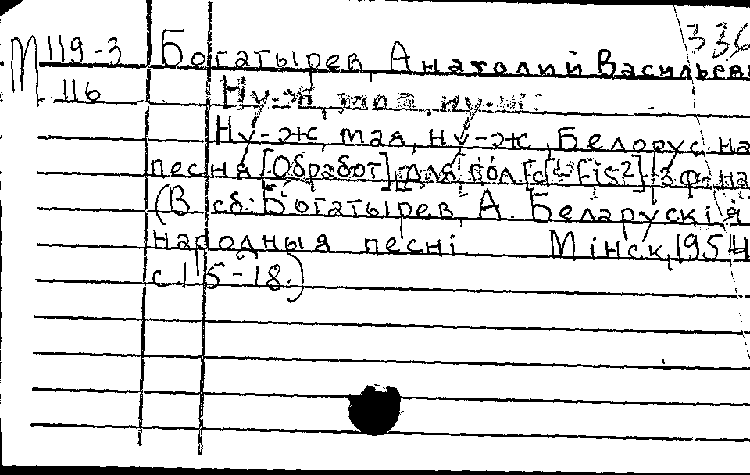 336
М 119-3 Богатырев, Анатолий Василь
116 Ну-ж, мая, ну-ж
Ну-ж, мая, ну-ж, Белорус. на
песня [Обработ] для гол. [c¹-Fis²] ф-на
(В сб: Богатырев, А. Беларускія
народныя песні Мінск, 1954
с 15-18.)